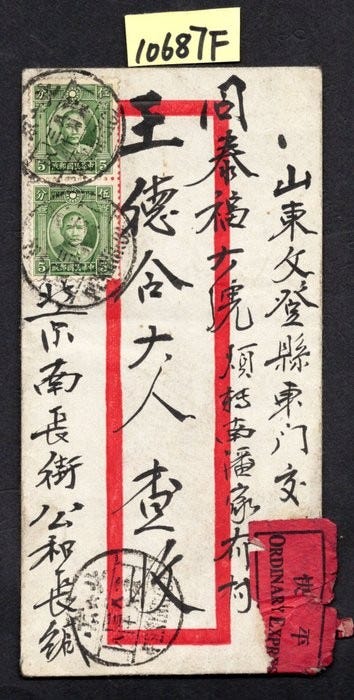 10687F
山東文登縣東门交
同泰福大號 煩轉南潘家疃村
王德合大人 查收
北京南長街公和長緘
伍
分
5
5
伍
分
5
5
快
平
ORDINARY EXPRE